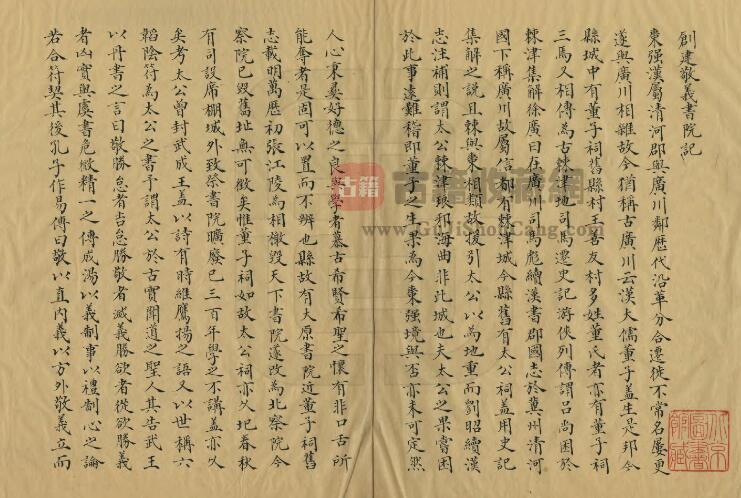 創建敬義書院記
棗強漢屬清河郡與廣川鄰歷代沿革分合遷徙不常名屢更
遂與廣川相雜故今猶稱古廣川云漢大儒董子蓋生是邦今
縣城中有董子祠舊縣村王善友村多姓董氏者亦有董子祠
三焉又相傳為古棘津地司馬遷史記游俠列傳謂呂尚困於
棘津集解徐廣曰在廣川司馬彪續漢書郡國志於冀州清河
國下稱廣川故屬信都有棘津城今縣舊有太公祠蓋用史記
集解之說且棘與棗相類故援引太公以為地重而劉昭續漢
志注補則謂太公棘津琅邪海曲非此城也夫太公之果嘗困
於此事遠難稽即董子之生果為今棗強境與否亦未可定然
人心秉彝好德之良與學者慕古希賢希聖之懷有非口舌所
能辱者是固可以置而不辨也縣故有大原書院近董子祠舊
志載明萬歷初張江陵為相檄毀天下書院遂改為北察院今
察院已毀舊址無可徵矣惟董子祠如故太公祠亦久圮春秋
有司設席棚城外致祭書院曠廢已三百年學之不講蓋亦久
矣考太公曾封武成王蓋以詩有時維鷹揚之語又以世稱六
韜陰符為太公之書予謂太公於古實聞道之聖人其告武王
以丹書之言曰敬勝怠者吉怠勝敬者滅義勝欲者從欲勝義
者凶實與虞書危微精一之傳成湯以義制事以禮制心之論
若合符契其後孔子作易傳曰敬以直內義以方外敬義立而
古籍
古籍收藏网
www.GuJiShouCang.com